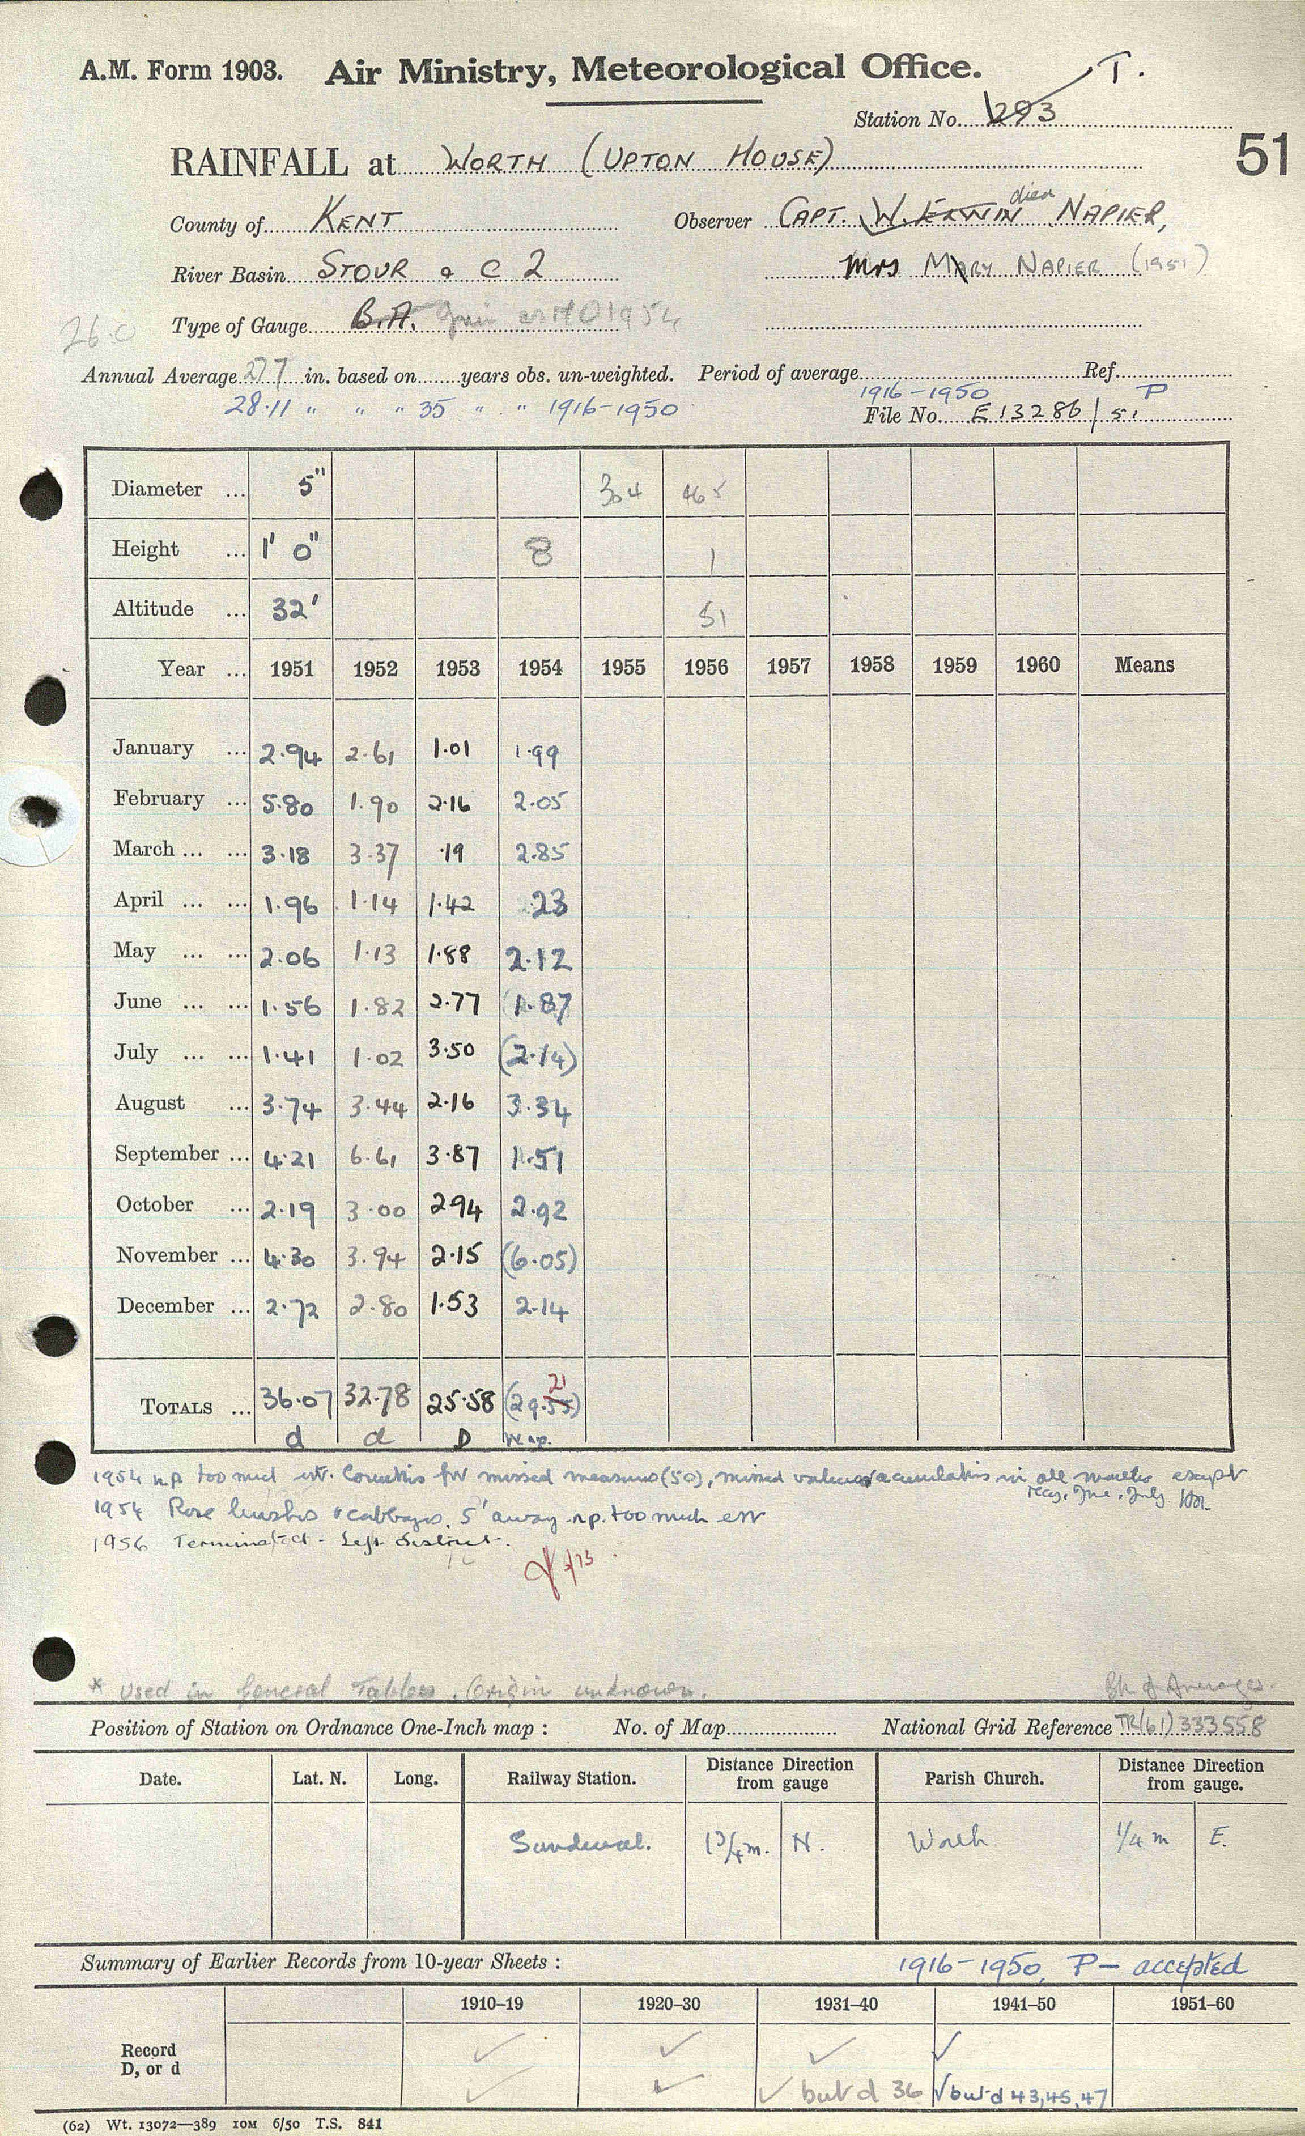 A.M. Form 1903. Air Ministry, Meteorological Office. T.
Station No. 293
51
RAINFALL at WORTH (UPTON HOUSE)
County of KENT Observer CAPT. W. ERWIN died NAPIER,
River Basin STOUR & C 2 Mrs MARY NAPIER (1951)
26.0 Type of Gauge B.A. 1954
Annual Average 27.7 in. based on years obs. un-weighted. Period of average 1916-1950 Ref. P
28.11 " " " 35 " " 1916-1950 File No. E 13286/51
Diameter ... 5" 304 465
Height ... 1' 0" 8 1
Altitude ... 32' 51
Year ... 1951 1952 1953 1954 1955 1956 1957 1958 1959 1960 Means
January ... 2.94 2.61 1.01 1.99
February ... 5.80 1.90 2.16 2.05
March ... ... 3.18 3.37 .19 2.85
April ... ... 1.96 1.14 1.42 .23
May ... ... 2.06 1.13 1.88 2.12
June ... ... 1.56 1.82 2.77 1.87
July ... ... 1.41 1.02 3.50 (2.14)
August ... 3.74 3.44 2.16 3.34
September ... 4.21 6.61 3.87 1.51
October ... 2.19 3.00 2.94 2.92
November ... 4.30 3.94 2.15 (6.05)
December ... 2.72 2.80 1.53 2.14
TOTALS ... 36.07 32.78 25.58 (29.55) 21
d d D n.p.
1954 n.p too much est. Counties for missed measures (50), missed values accumulations in all months except May, June, July
1954 Rose bushes & cabbages, 5' away n.p. too much est
1956 Terminated - Left district.
3/73
* Used in General Tables. Origin unknown. Bk of Averages.
Position of Station on Ordnance One-Inch map : No. of Map National Grid Reference TR(61)333558
Date. Lat. N. Long. Railway Station. Distance Direction from gauge Parish Church. Distance Direction from gauge.
Sandwich. 1 3/4 m. N. Worth 1/4 m E.
Summary of Earlier Records from 10-year Sheets : 1916-1950, P - accepted
1910–19 1920–30 1931–40 1941–50 1951–60
Record ✓ ✓ ✓ ✓
D, or d ✓ ✓ ✓ but d 36 ✓ but d 43, 45, 47
(62) Wt. 13072—389 10M 6/50 T.S. 841